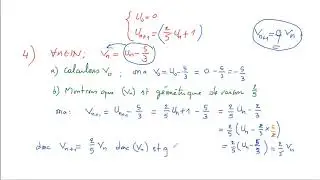 U₀ = 0
Uₙ₊₁ = (2/5 Uₙ + 1)
Vₙ₊₁ = q Vₙ
4) ∀n∈ℕ; Vₙ = Uₙ - 5/3
a) calculons V₀ ; ona V₀ = U₀ - 5/3 = 0 - 5/3 = -5/3
b) Montrons que (Vₙ) est géométrique de raison 2/5
ona: Vₙ₊₁ = Uₙ₊₁ - 5/3 = 2/5 Uₙ + 1 - 5/3 = 2/5 Uₙ - 2/3
= 2/5 (Uₙ - 2/3 × 5/2)
donc Vₙ₊₁ = 2/5 Vₙ donc (Vₙ) est g = 2/5 (Uₙ - 5/3) = 2/5 Vₙ